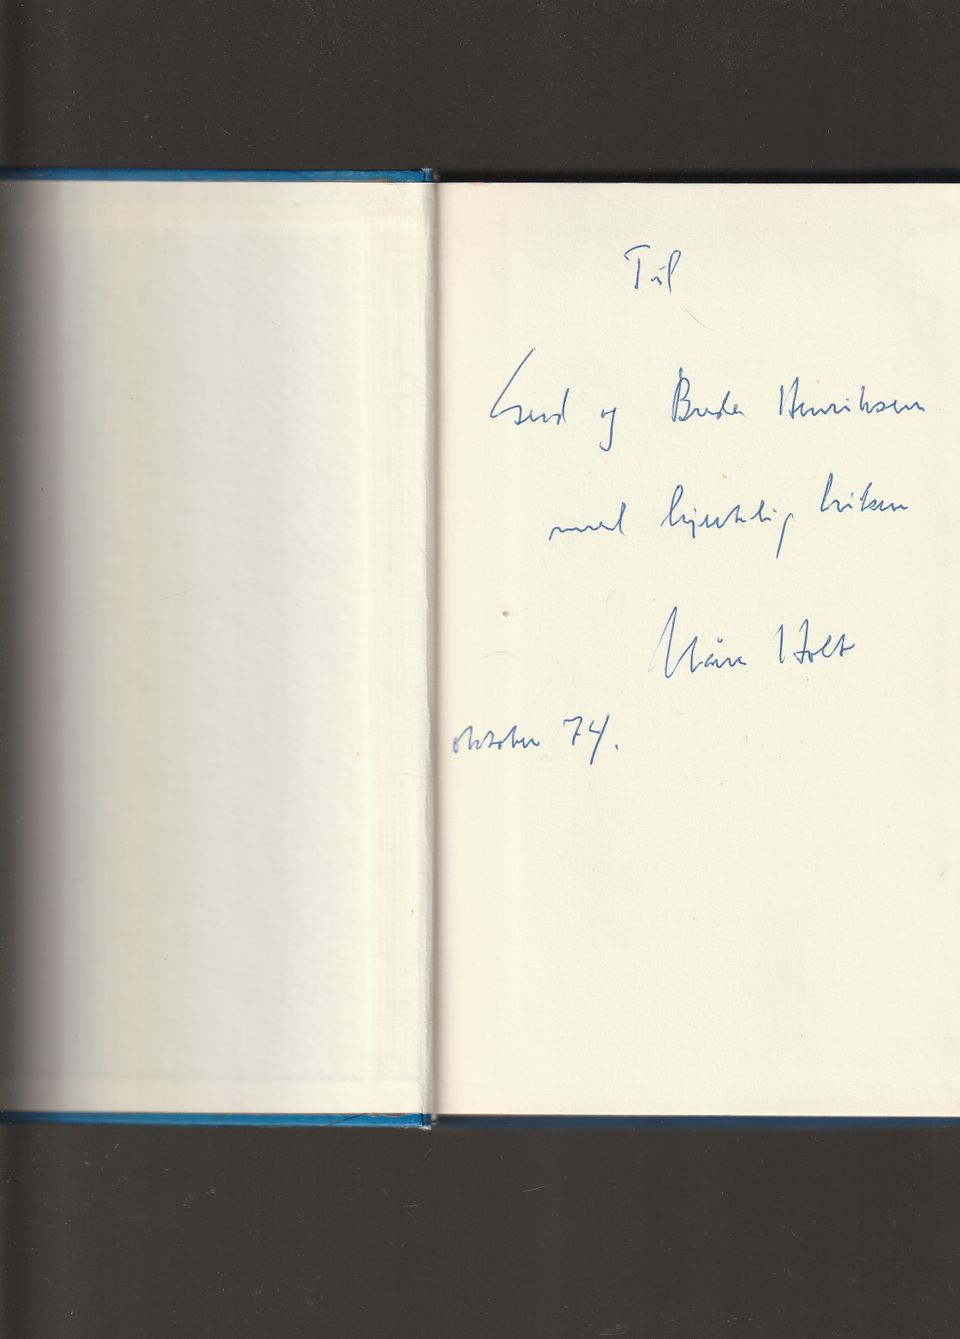 Til
Gerd og Henriksen
med hjertelig hilsen
Kåre Holt
oktober 74.